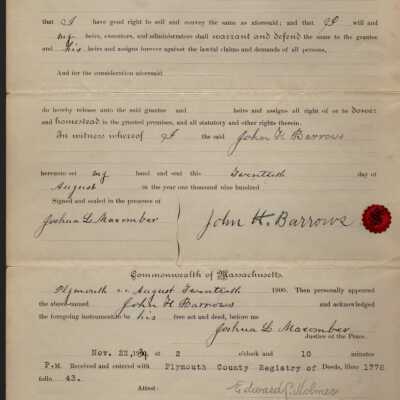 that I have good right to sell and convey the same as aforesaid; and that I will and
my heirs, executors, and administrators shall warrant and defend the same to the grantee
and his heirs and assigns forever against the lawful claims and demands of all persons,
And for the consideration aforesaid
do hereby release unto the said grantee and heirs and assigns all right of or to dower
and homestead in the granted premises, and all statutory and other rights therein.
In witness whereof I the said John H Barrows
hereunto set my hand and seal this Twentieth day of
August in the year one thousand nine hundred
Signed and sealed in the presence of
Joshua L Macomber John H. Barrows
Commonwealth of Massachusetts.
Plymouth ss. August Twentieth 1900. Then personally appeared
the above-named John H Barrows and acknowledged
the foregoing instrument to be his free act and deed, before me
Joshua L Macomber
Justice of the Peace.
Nov. 22, at 2 o'clock and 10 minutes
P.M. Received and entered with Plymouth County Registry of Deeds, Libro 1778
folio 43.
Attest: Edward